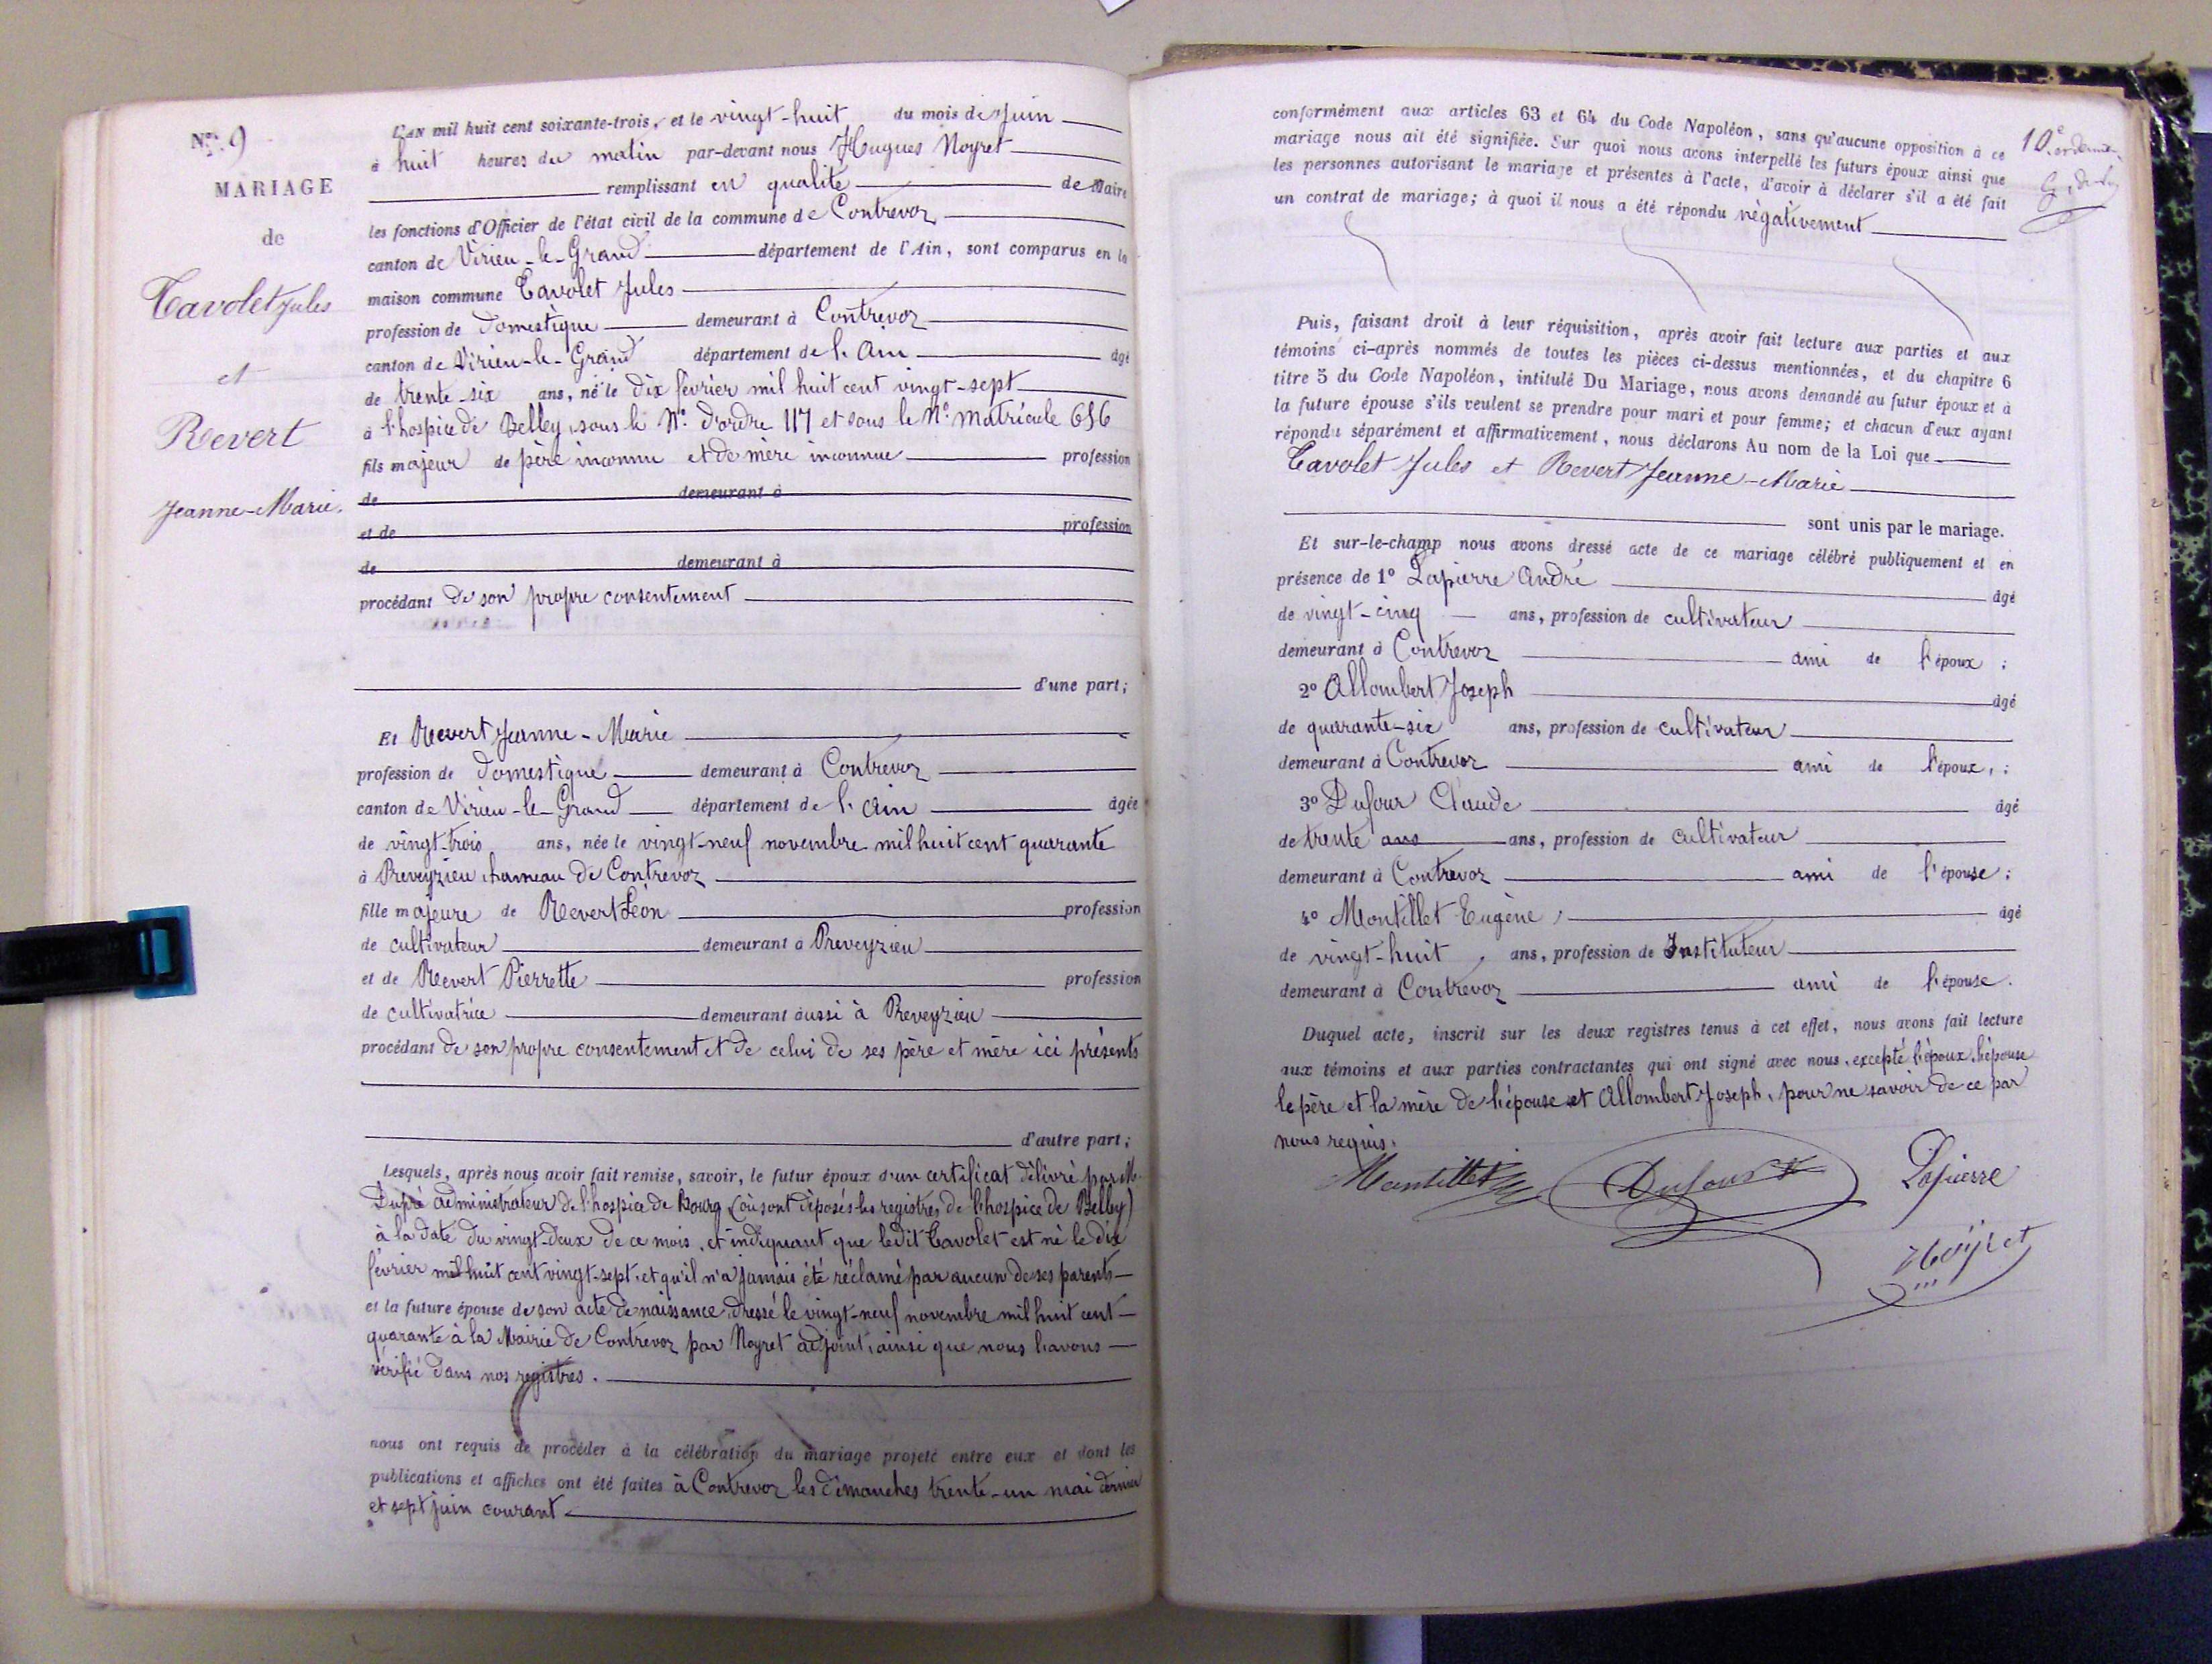 No. 9
MARIAGE
de
Tavolet Jules
et
Revert
Jeanne-Marie.
L'AN mil huit cent soixante-trois, et le vingt-huit du mois de Juin
à huit heures du matin par-devant nous Hugues Noyret
remplissant en qualité de Maire
les fonctions d'Officier de l'état civil de la commune de Contrevoz
canton de Virieu-le-Grand département de l'Ain, sont comparus en la
maison commune Tavolet Jules
profession de domestique demeurant à Contrevoz
canton de Virieu-le-Grand département de l'Ain âgé
de trente-six ans, né le dix février mil huit cent vingt-sept
à l'hospice de Belley, sous le No. d'ordre 117 et sous le No. matricule 656
fils majeur de père inconnu et de mère inconnue profession
de demeurant à
et de profession
de demeurant à
procédant de son propre consentement
d'une part;
Et Revert Jeanne-Marie
profession de domestique demeurant à Contrevoz
canton de Virieu-le-Grand département de l'Ain âgée
de vingt-trois ans, née le vingt-neuf novembre mil huit cent quarante
à Preveyzieu, hameau de Contrevoz
fille majeure de Revert Léon profession
de cultivateur demeurant à Preveyzieu
et de Revert Pierrette profession
de cultivatrice demeurant aussi à Preveyzieu
procédant de son propre consentement et de celui de ses père et mère ici présents
d'autre part;
Lesquels, après nous avoir fait remise, savoir, le futur époux d'un certificat délivré par M.
Dupré administrateur de l'hospice de Bourg (où sont déposés les registres de l'hospice de Belley)
à la date du vingt-deux de ce mois, et indiquant que ledit Tavolet est né le dix
février mil huit cent vingt-sept, et qu'il n'a jamais été réclamé par aucun de ses parents
et la future épouse de son acte de naissance, dressé le vingt-neuf novembre mil huit cent
quarante à la Mairie de Contrevoz par Noyret adjoint, ainsi que nous l'avons
vérifié dans nos registres.
nous ont requis de procéder à la célébration du mariage projeté entre eux et dont les
publications et affiches ont été faites à Contrevoz les dimanches trente-un mai dernier
et sept juin courant
conformément aux articles 63 et 64 du Code Napoléon, sans qu'aucune opposition à ce
mariage nous ait été signifiée. Sur quoi nous avons interpellé les futurs époux ainsi que
les personnes autorisant le mariage et présentes à l'acte, d'avoir à déclarer s'il a été fait
un contrat de mariage; à quoi il nous a été répondu négativement
10e
Puis, faisant droit à leur réquisition, après avoir fait lecture aux parties et aux
témoins ci-après nommés de toutes les pièces ci-dessus mentionnées, et du chapitre 6
titre 5 du Code Napoléon, intitulé Du Mariage, nous avons demandé au futur époux et à
la future épouse s'ils veulent se prendre pour mari et pour femme; et chacun d'eux ayant
répondu séparément et affirmativement, nous déclarons Au nom de la Loi que
Tavolet Jules et Revert Jeanne-Marie
sont unis par le mariage.
Et sur-le-champ nous avons dressé acte de ce mariage célébré publiquement et en
présence de 1º Lapierre André âgé
de vingt-cinq ans, profession de cultivateur
demeurant à Contrevoz ami de l'époux;
2º Allombert Joseph âgé
de quarante-six ans, profession de cultivateur
demeurant à Contrevoz ami de l'époux,;
3º Dufour Claude âgé
de trente ans ans, profession de cultivateur
demeurant à Contrevoz ami de l'épouse;
4º Montillet Eugène, âgé
de vingt-huit, ans, profession de Instituteur
demeurant à Contrevoz ami de l'épouse.
Duquel acte, inscrit sur les deux registres tenus à cet effet, nous avons fait lecture
aux témoins et aux parties contractantes qui ont signé avec nous, excepté l'époux, l'épouse
le père et la mère de l'épouse et Allombert Joseph, pour ne savoir de ce par
nous requis.
Montillet Dufour Lapierre
Noyret